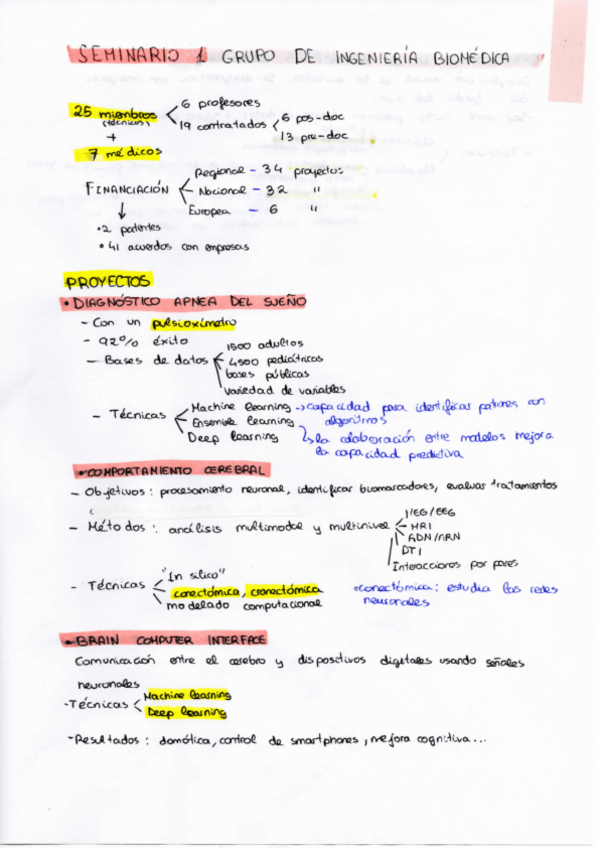 SEMINARIO 1 GRUPO DE INGENIERÍA BIOMÉDICA
25 miembros (técnicos)
6 profesores
19 contratados
6 pos-doc
13 pre-doc
+
7 médicos
FINANCIACIÓN
Regional - 34 proyectos
Nacional - 32 "
Europea - 6 "
• 2 patentes
• 41 acuerdos con empresas
PROYECTOS
• DIAGNÓSTICO APNEA DEL SUEÑO
- Con un pulsioxímetro
- 92% éxito
- Bases de datos
1500 adultos
4500 pediátricas
bases públicas
variedad de variables
- Técnicas
Machine learning → capacidad para identificar patrones con algoritmos
Ensemble learning
Deep learning
→ la colaboración entre modelos mejora la capacidad predictiva
• COMPORTAMIENTO CEREBRAL
- Objetivos: procesamiento neuronal, identificar biomarcadores, evaluar tratamientos
- Métodos: análisis multimodal y multinivel
MEG/EEG
MRI
ADN/ARN
DTI
Interacciones por pares
- Técnicas
"In silico"
conectómica, cronectómica
modelado computacional
• conectómica: estudia las redes neuronales
• BRAIN COMPUTER INTERFACE
Comunicación entre el cerebro y dispositivos digitales usando señales
neuronales
- Técnicas
Machine learning
Deep learning
- Resultados: domótica, control de smartphones, mejora cognitiva...